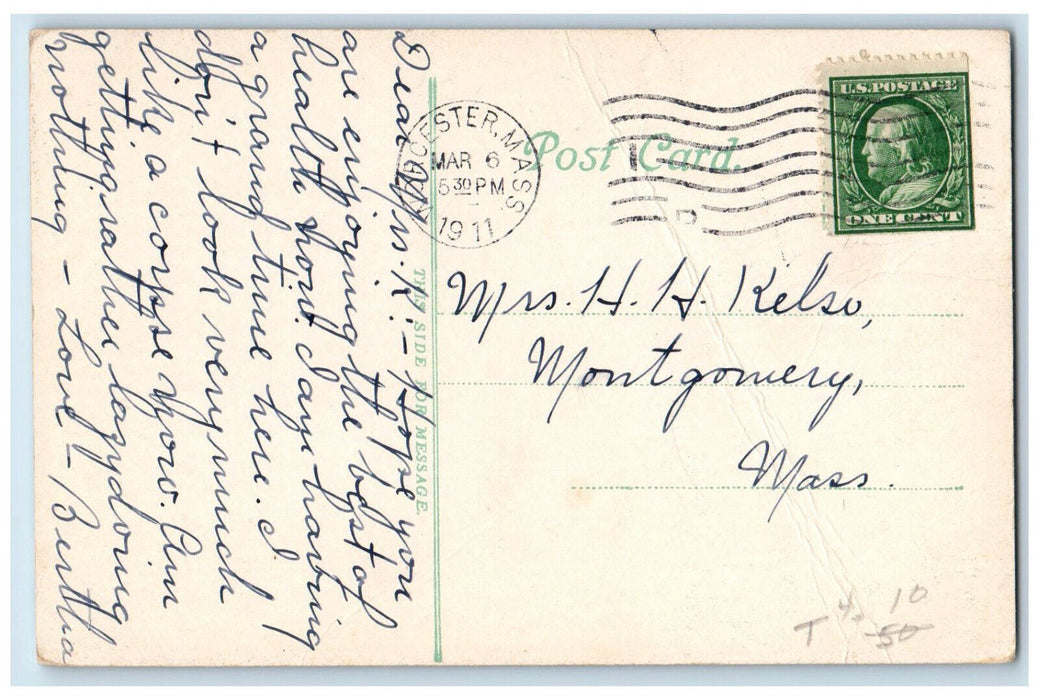 Dear Mrs. K. - Hope you
are enjoying the best of
health now. I am having
a grand time here. I
don't look very much
like a corpse now. Am
getting rather lazy doing
nothing - Love - Bertha
THIS SIDE FOR MESSAGE.
WORCESTER, MASS.
MAR 6
5 30 PM
1911
Post Card.
D
U.S. POSTAGE
ONE CENT
Mrs. H. H. Kelso,
Montgomery,
Mass.
10
T 50